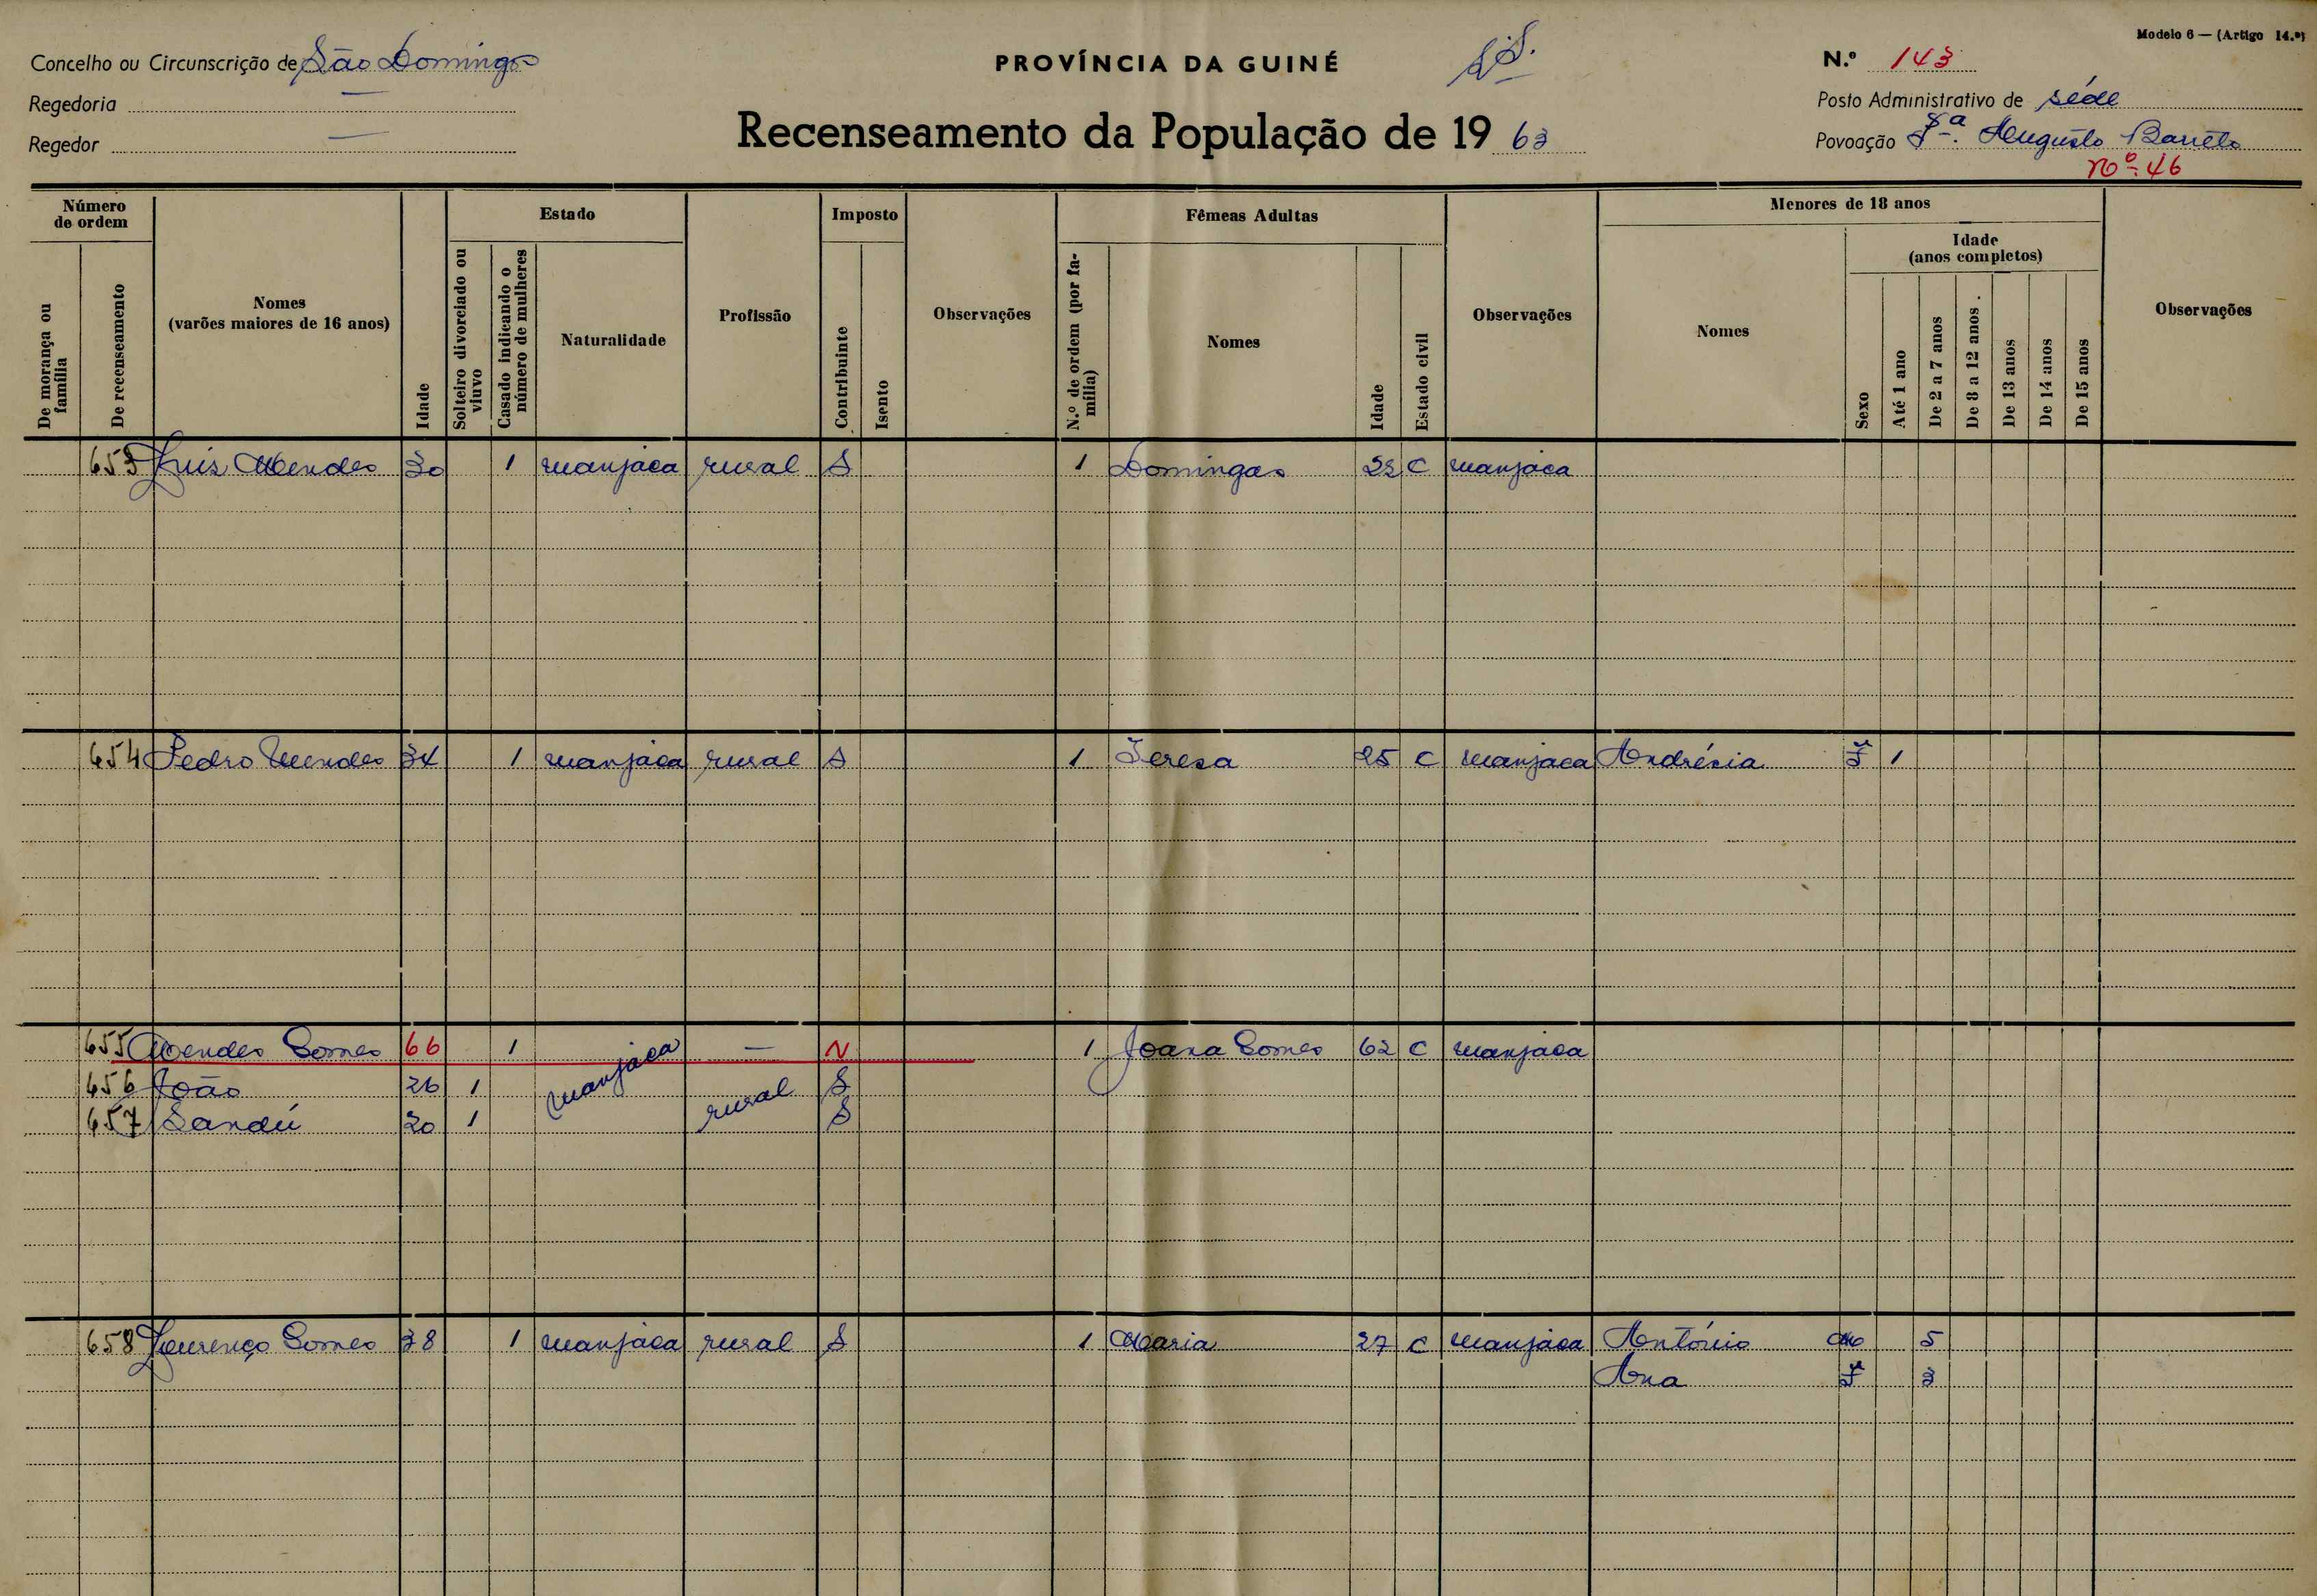 Modelo 6 — (Artigo 14.º)
Concelho ou Circunscrição de São Domingos
PROVÍNCIA DA GUINÉ
N.º 143
Regedoria —
Posto Administrativo de séde
Regedor —
Recenseamento da População de 1963
Povoação F.ª Augusto Barreto
Nº 46
Número de ordem
Estado
Imposto
Fêmeas Adultas
Menores de 18 anos
De morança ou família
De recenseamento
Nomes (varões maiores de 16 anos)
Idade
Solteiro divorciado ou viuvo
Casado indicando o número de mulheres
Naturalidade
Profissão
Contribuinte
Isento
Observações
N.º de ordem (por família)
Nomes
Idade
Estado civil
Observações
Nomes
Sexo
Idade (anos completos)
Até 1 ano
De 2 a 7 anos
De 8 a 12 anos.
De 13 anos
De 14 anos
De 15 anos
Observações
653 Luis Mendes 30 1 manjaca rural S 1 Domingas 22 C manjaca
654 Pedro Mendes 34 1 manjaca rural S 1 Teresa 25 C manjaca Andrésia F 1
655 Mendes Gomes 66 1 manjaca — N 1 Joana Gomes 62 C manjaca
656 João 26 1 rural S
657 Sandú 20 1 S
658 Lourenço Gomes 38 1 manjaca rural S 1 Maria 27 C manjaca António M 5
Ana F 3